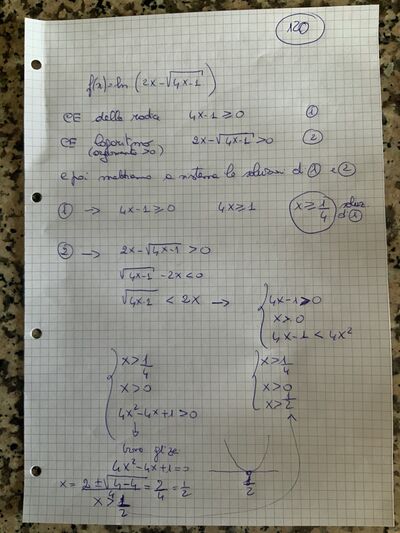 120
f(x)=ln (2x-√4x-1)
CE della radice 4x-1≥0 ①
CE logaritmo 2x-√4x-1>0 ②
(argomento >0)
e poi mettiamo a sistema le soluzioni di ① e ②
① → 4x-1≥0 4x≥1 x≥1/4 soluz. di ①
② → 2x-√4x-1>0
√4x-1-2x<0
√4x-1<2x →
4x-1≥0
x>0
4x-1<4x²
x>1/4
x>0
4x²-4x+1>0
↓
trovo gli zeri
4x²-4x+1=0
x=2±√4-4/4=2/4=1/2
x>1/2
x>1/4
x>0
x>1/2
1/2